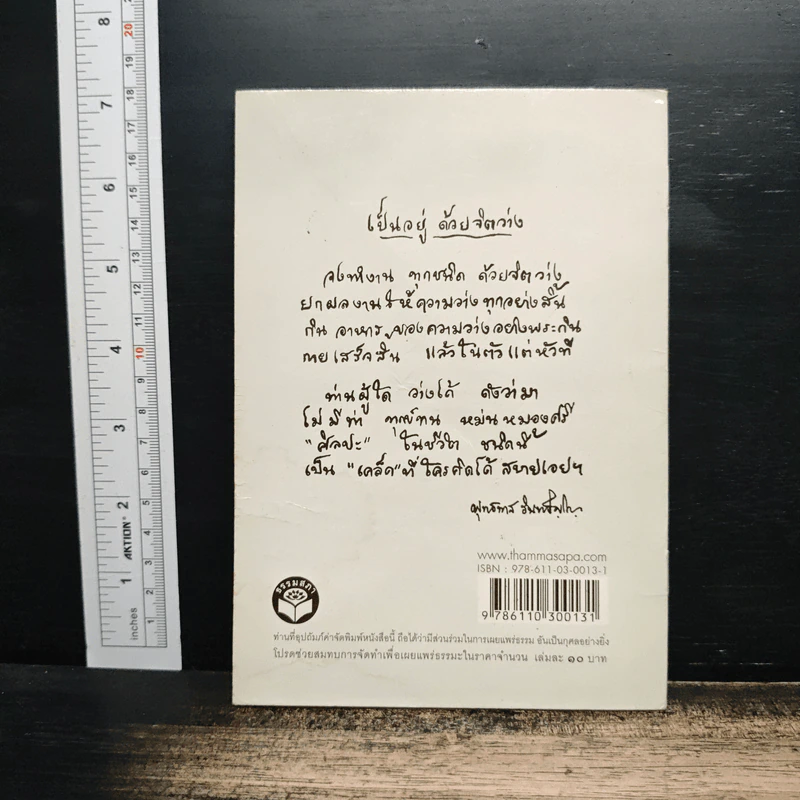 8
7
6
5
4
3
2
1
inches
AKTION®
20
19
18
17
16
15
14
13
12
11
10
9
8
7
6
5
4
3
2
1
เป็นอยู่ ด้วยจิตว่าง
จงทำงาน ทุกชนิด ด้วยจิตว่าง
ยกผลงานให้ความว่างทุกอย่างสิ้น
กินอาหารของความว่างอย่างพระกิน
ตายเสร็จสิ้น แล้วในตัวแต่หัวที
ท่านผู้ใด ว่างได้ ดังว่ามา
ไม่มีท่า ทุกข์ทน หม่นหมองศรี
"ศิลปะ" ในชีวิต ชนิดนี้
เป็น "เคล็ด" ที่ใครคิดได้ สบายเอยฯ
พุทธทาส อินทปัญโญ
www.thammasapa.com
ISBN : 978-611-03-0013-1
9 786110 300131
ธรรมสภา
ท่านที่อุปถัมภ์ค่าจัดพิมพ์หนังสือนี้ ถือได้ว่ามีส่วนร่วมในการเผยแพร่ธรรม อันเป็นกุศลอย่างยิ่ง
โปรดช่วยสมทบการจัดทำเพื่อเผยแพร่ธรรมะในราคาจำนวน เล่มละ ๑๐ บาท